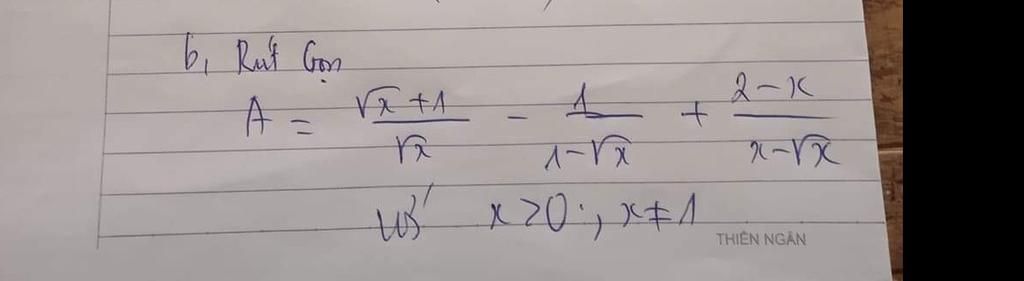 b, Rút Gọn
A = \frac{\sqrt{x}+1}{\sqrt{x}} - \frac{1}{1-\sqrt{x}} + \frac{2-x}{x-\sqrt{x}}
với x>0; x≠1
THIÊN NGÂN